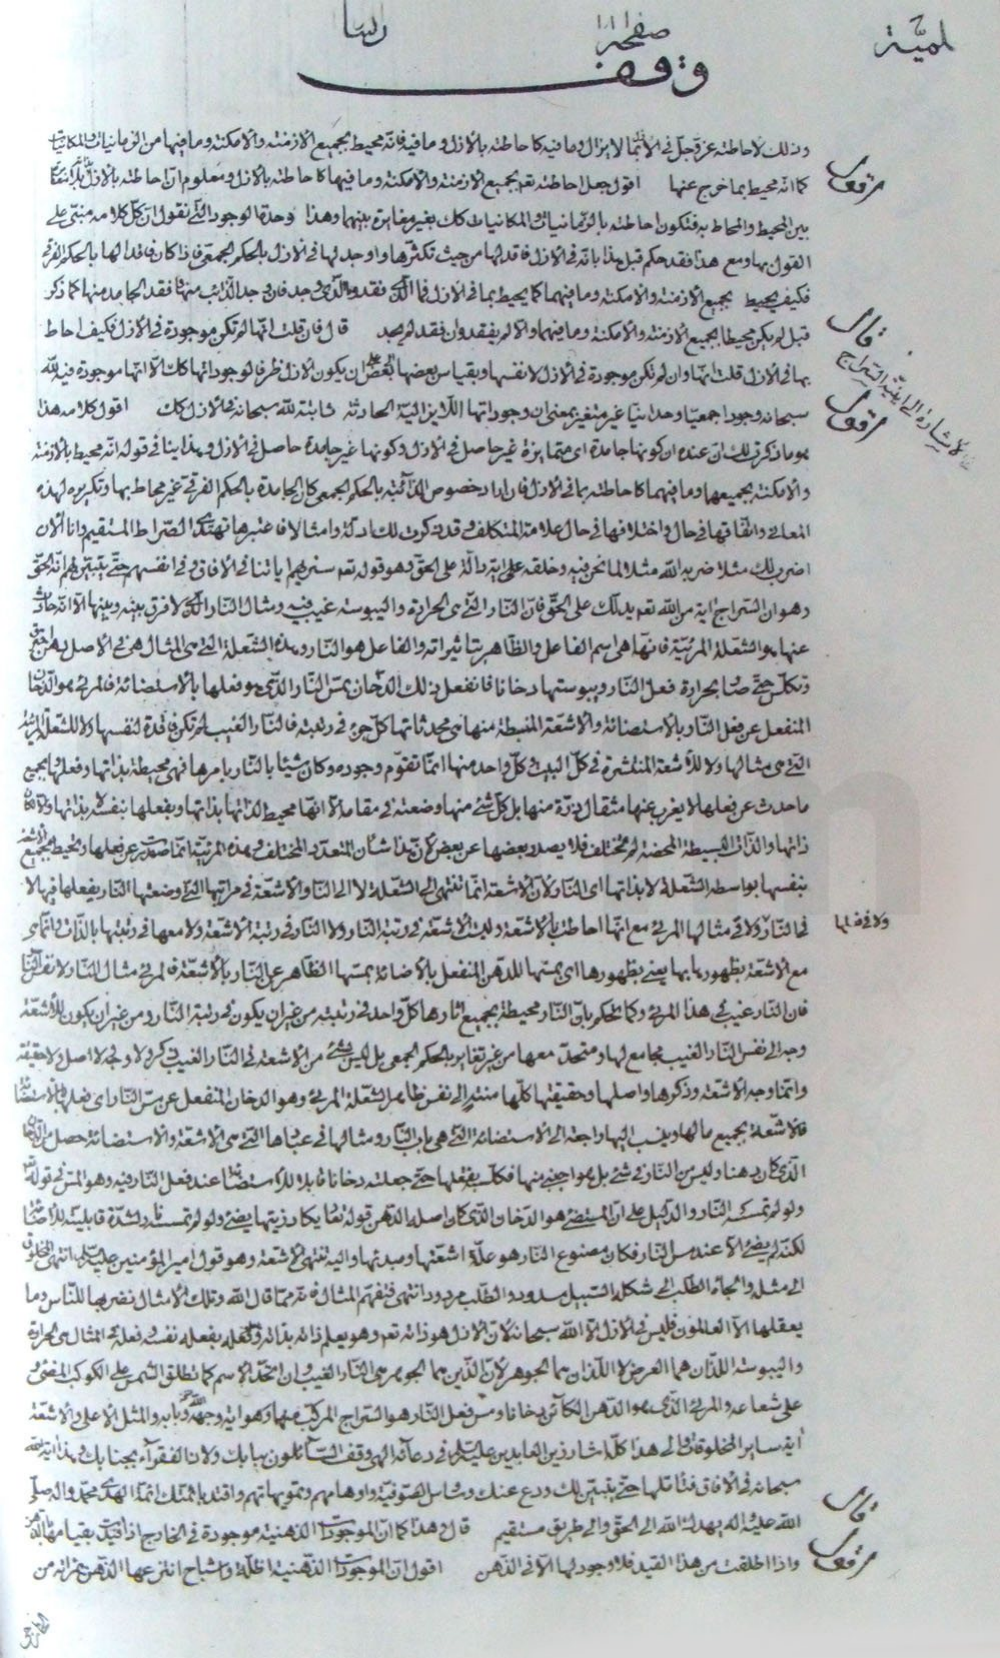 لميّة
صفحة
رسا
وقف
وذلك لاحاطته عزّ وجلّ في الأزل بما لا يزال وما فيه كاحاطته بالأزل وما فيه فانّه محيط بجميع الأزمنة والأمكنة وما فيها من الزمانيات والمكانيات
كما انّه محيط بما خرج عنها اقول جعل احاطته تعم بجميع الأزمنة والأمكنة وما فيها كاحاطته بالأزل ومعلوم انّ احاطته بالأزل
بين المحيط والمحاط به فتكون احاطته بالزمانيات والمكانيات كك بغير مغايرة بينهما وهذا وحدة الوجود الّتي نقول ان كلّ كلامه مبتنى على
القول بها ومع هذا فقد حكم قبل هذا بانّه في الأزل فاقد لها من حيث تكثرها وواجد لها في الأزل بالحكم الجمعي فاذا كان فاقدا لها بالحكم الفرقي
فكيف يحيط بجميع الأزمنة والأمكنة وما فيهما كما يحيط بما في الأزل فما الّذي فقد والّذي وجد فان وجد الذائب منها فقد الجامد منها كما ذكر
قبل لم يكن محيطا بجميع الأزمنة والأمكنة وما فيهما والا لم يفقد وان فقد لم يجد قال فان قلت انّها لم تكن موجودة في الأزل فكيف احاط
بها في الأزل قلت انّها وان لم تكن موجودة في الأزل لانفسها وبقياس بعضها الى بعض على ان يكون الأزل ظرفا لوجوداتها كك الّا انّها موجودة فيه للّه
سبحانه وجودا جمعيّا وحدانيّا غير متغير بمعنى ان وجوداتها اللّايزاليّة الحادثة ثابتة للّه سبحانه في الأزل كك اقول كلامه هذا
هو ما ذكرت لك ان عنده ان كونها جامدة اى متمايزة غير حاصل في الأزل وكونها غير جامدة حاصل في الأزل وهذا ينافي قوله انّه محيط بالأزمنة
والأمكنة بجميعها وما فيهما كاحاطته بما في الأزل فان اراد خصوص الذائبة بالحكم الجمعي كان الجامدة بالحكم الفرقي غير محاط بها وتكريره لهذه
المعاني واتّفاقها في حال واختلافها في حال علامة المتكلّف وقد ذكرت لك ادلّة وامثالا فاعتبرها تهتد الى الصّراط المستقيم وانا الآن
اضرب لك مثلا ضربه اللّه مثلا لما نحن فيه وخلقه على اية دالّة على الحق وهو قوله تعم سنريهم اياتنا في الأفاق وفي انفسهم حتّى يتبيّن لهم انّه الحقّ
وهو ان السّراج اية من اللّه تعم يدلّك على الحقّ فانّ النّار الّتي هي الحرارة واليبوسة غيب فيه ومثال النّار الّذي لا فرق بينه وبينها الّا انّه حادث
عنها هو الشعلة المرئيّة فانّها هي اسم الفاعل والظّاهر بتاثيراته والفاعل هو النّار وهذه الشعلة الّتي هي المثال هي في الأصل دهن احترق
وتكلّس حتّى صار بحرارة فعل النّار ويبوستها دخانا فانفعل ذلك الدخان بمسّ النار الّذي هو فعلها بالاستضائة فالمرئي هو الدخان
المنفعل عن فعل النّار بالاستضائة والأشعّة المنبسطة منها هي محدثاتها كلّ جزء في رتبته فالنار الغيب لم تكن فاقدة لنفسها ولا للشعلة المرئيّة
الّتي هي مثالها ولا للأشعة المنتشرة في كلّ البيت في كلّ واحد منها انّما تقوّم وجوده وكان شيئا بالنّار بامرها فهي محيطة بذاتها وفعلها بجميع
ما حدث عن فعلها لا يعزب عنها مثقال ذرّة منها بل كلّ شئ منها وضعته في مقامه لا انّها محيط لذاتها بذاتها وبفعلها بنفسه
ذاتها والذات البسيطة المحضة لم تختلف فلا يصدر بعضها عن بعض لأنّ هذا شأن المتعدّد المختلف وهذه المرتبة انّما صدرت عن فعلها وتحيط بجميع الاشعة
بنفسها بواسطة الشعلة لا بذاتها اى النّار لأنّ الأشعّة انّما تنتهى الى الشعلة لا الى النار والأشعّة في مراتبها الّتي وضعتها النّار بفعلها فيها لا
في النّار ولا في مثالها المرئي مع انّها احاطت بالأشعّة وليست الأشعّة في رتبة النّار ولا النّار في رتبة الأشعّة ولا معها في رتبتها بالذّات وانّما هي
ولا في فعلها
مع الأشعّة بظهورها بها يعني بظهورها اى بمسّها للدهن المنفعل بالاضائة بمسّها الظاهر عن النّار بالأشعّة فالمرئي مثال النّار لا نفس النّار
فان النّار غيب في هذا المرئي وكما تحكم بانّ النّار محيطة بجميع اثارها كلّ واحد في رتبته من غير ان يكون في رتبة النّار ومن غير ان يكون للأشعّة
وجه الى نفس النّار الغيب مجامع لها ومتحدّ معها من غير تغاير بالحكم الجمعي بل ليس لشئ من الأشعة في النّار الغيب ذكر ولا وجه ولا اصل ولا حقيقة
وانّما وجه الأشعّة وذكرها واصلها وحقيقتها كلّها منته الى نفس ظاهر الشعلة المرئي وهو الدخان المنفعل عن مسّ النّار اى فعلها بالاستضائة
فالأشعّة بجميع مالها وينسب اليها راجعة الى الاستضائة الّتي هي باب النّار ومثالها في الّتي هي الأشعّة والاستضائة حصل من الدخان
الّذي كان دهنا وليس من النّار في شئ بل هو اجنبيّ منها فكلّسه بفعلها حتّى جعلته دخانا قابلا للاستضائة عند فعل النّار فيه وهو المسّ في قوله
ولو لم تمسسه النّار والدّليل على انّ المستضئ هو الدخان الّذي كان اصله الدّهن قوله تعا يكاد زيتها يضئ ولو لم تمسسه نار لشدّة قابليّته للاضائة
لكنّه لم يضئ الّا عند مسّ النّار فكان مصنوع النّار هو علّة اشعّتها ومبدئها واليه تنتهى الأشعة وهو قول امير المؤمنين عليه السلام انتهى المخلوق
الى مثله والجاه الطلب الى شكله السّبيل مسدود والطّلب مردود انتهى فتفهّم المثال فهو مما قال اللّه وتلك الأمثال نضربها للنّاس وما
يعقلها الّا العالمون فليس في الأزل الّا اللّه سبحانه لأن الأزل هو ذاته تعم وهو يعلم ذاته بذاته وفعله بفعله نفسه وفعله في المثال هي الحرارة
واليبوسة اللّذان هما العرض لا اللّذان هما الجوهر لأنّ الّذين هما الجوهر هي النّار الغيب وان اتّحد الاسم كما تطلق الشمس على الكوكب المضئ و
على شعاعه والمرئي الّذي هو الدّهن الكائن دخانا ومسّ فعل النّار هو السّراج المركّب منهما وهو اية وجه اللّه وبابه والمثل الأعلى والأشعّة
اية ساير المخلوقات والى هذا كلّه اشار زين العابدين عليه السلام في دعائه الهي وقف السّائلون ببابك ولاذ الفقرآء بجنابك وهذا اية اللّه
سبحانه في الأفاق فتأمّلها حتّى يتبيّن لك ودع عنك وساوس الصّوفيّة واوهامهم وتمويهاتهم واقتد بائمّتك ائمّة الهدى محمّد واله صلّى
اللّه عليه وآله يهدك اللّه الى الحقّ والى طريق مستقيم قال وهذا كما انّ الموجودات الذهنية موجودة في الخارج اذا قيّدت بقيامها بالذهن
واذا اطلقت من هذا القيد فلا وجود لها الّا في الذهن اقول انّ الموجودات الذهنية اظلّة واشباح انتزعها الذهن بمرآته من
الخارج